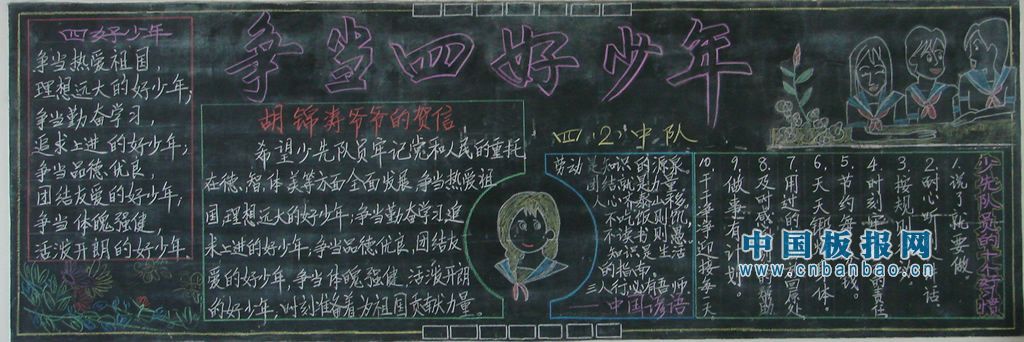 争当四好少年
四好少年
争当热爱祖国，
理想远大的好少年；
争当勤奋学习，
追求上进的好少年；
争当品德优良，
团结友爱的好少年，
争当体魄强健，
活泼开朗的好少年
胡锦涛爷爷的贺信
希望少先队员牢记党和人民的重托
在德、智、体、美等方面全面发展，争当热爱祖
国，理想远大的好少年；争当勤奋学习，追
求上进的好少年，争当品德优良、团结友
爱的好少年，争当体魄强健、活泼开朗
的好少年，时刻准备着为祖国贡献力量。
四（2）中队
劳动是知识的源泉
三人行，必有吾师
——中国谚语
少先队员的十个习惯
1、说了就要做
2、耐心听
3、按规
4、时刻
5、节约每
6、天天锻
7、用过的
8、及时感
9、做事有计划。
10、干干净净迎接每一天
中国板报网
www.cnbanbao.cn